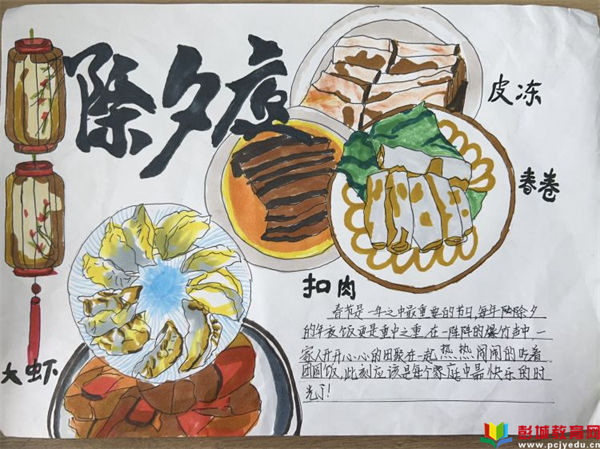 除夕
皮冻
春卷
扣肉
春节是一年之中最重要的节日,每年的除夕
的年夜饭更是重中之重,在一阵阵的爆竹声中,一
家人开开心心的团聚在一起,热热闹闹的吃着
团圆饭,此刻应该是每个家庭中最快乐的时
光了!
大虾
彭城教育网
www.pcjyedu.cn